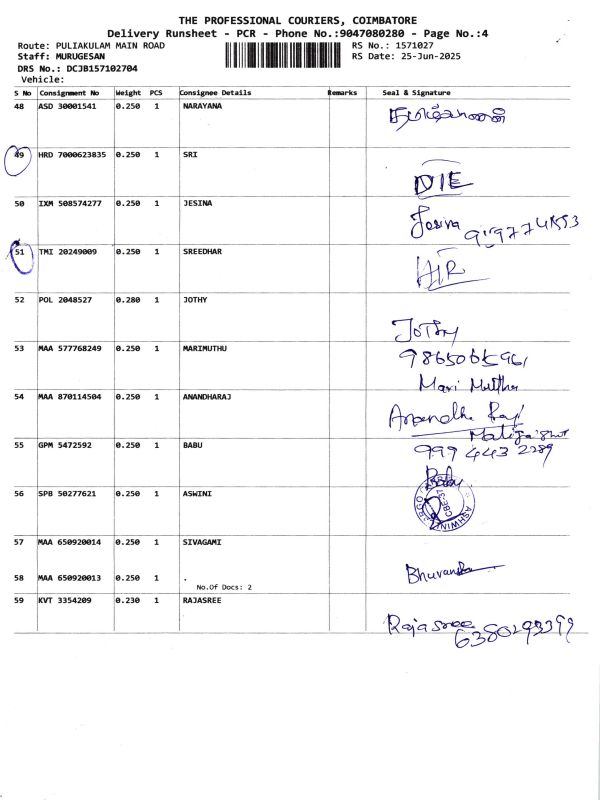 THE PROFESSIONAL COURIERS, COIMBATORE
Delivery Runsheet - PCR - Phone No.:9047080280 - Page No.:4
Route: PULIAKULAM MAIN ROAD RS No.: 1571027
Staff: MURUGESAN RS Date: 25-Jun-2025
DRS No.: DCJB157102704
Vehicle:
S No Consignment No Weight PCS Consignee Details Remarks Seal & Signature
48 ASD 30001541 0.250 1 NARAYANA
49 HRD 7000623835 0.250 1 SRI
NIE
50 IXM 508574277 0.250 1 JESINA
Jesina
51 TMI 20249009 0.250 1 SREEDHAR
52 POL 2048527 0.280 1 JOTHY
JoThy
9865065961
53 MAA 577768249 0.250 1 MARIMUTHU
Mari Muthu
54 MAA 870114504 0.250 1 ANANDHARAJ
Anandha Raj
55 GPM 5472592 0.250 1 BABU
999 443 2289
Babu
56 SPB 50277621 0.250 1 ASWINI
57 MAA 650920014 0.250 1 SIVAGAMI
58 MAA 650920013 0.250 1 .
No.Of Docs: 2
59 KVT 3354209 0.230 1 RAJASREE
Rajasree